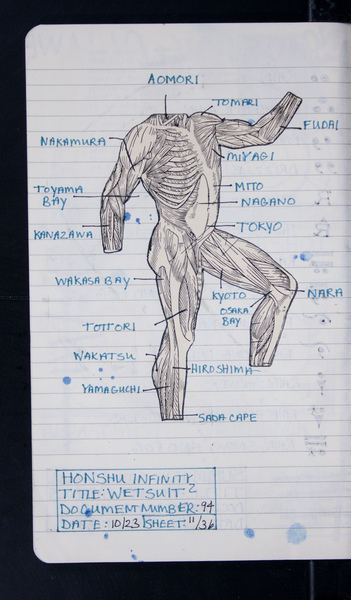 AOMORI
TOMARI
FUDAI
NAKAMURA
MIYAGI
TOYAMA
BAY
MITO
NAGANO
KANAZAWA
TOKYO
WAKASA BAY
KYOTO
NARA
OSAKA
BAY
TOTTORI
WAKATSU
HIROSHIMA
YAMAGUCHI
SADA CAPE
HONSHU INFINITY
TITLE: WETSUIT 2
DOCUMENT NUMBER: 94
DATE: 10/23 SHEET: 11/36